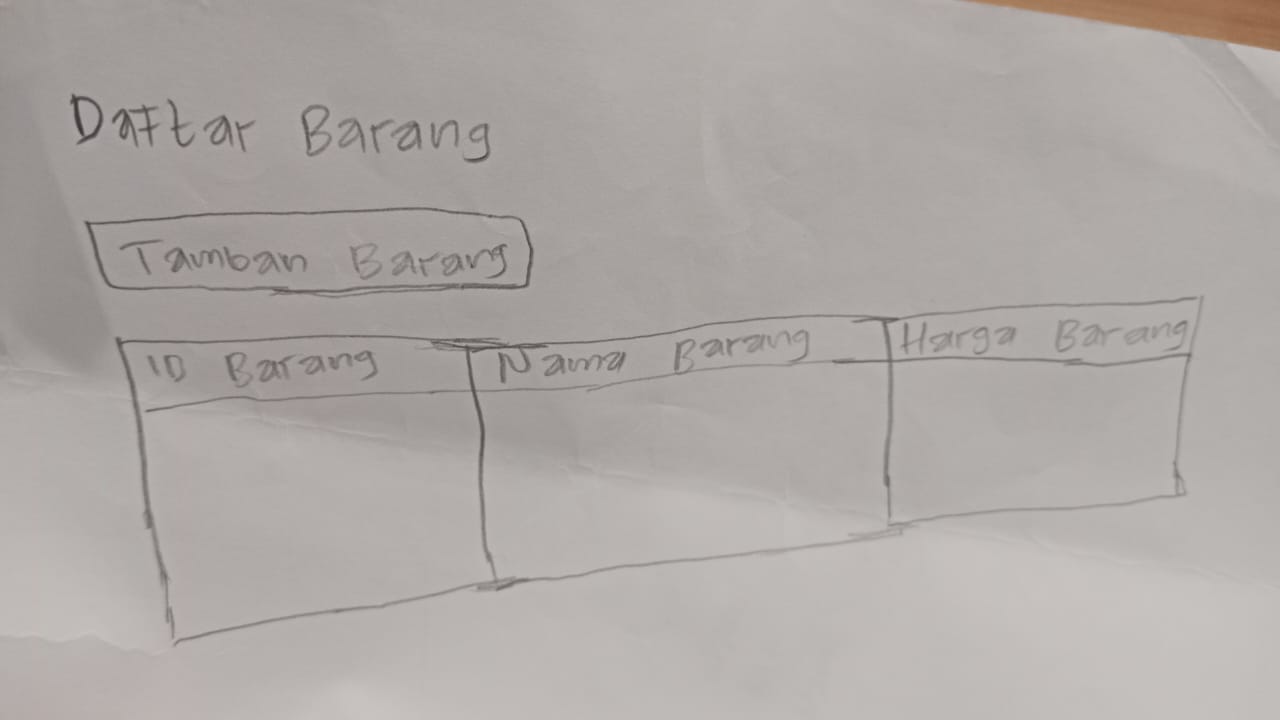 Daftar Barang
Tambah Barang
ID Barang Nama Barang Harga Barang